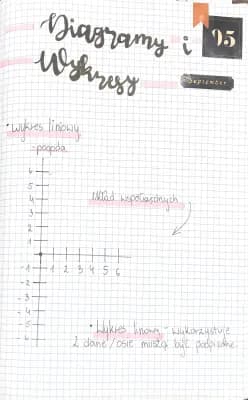 Diagramy i
Wykresy
05
September
• wykres liniowy
- pogoda
układ współrzędnych
6
5
4
3
2
1
-1 1 2 3 4 5 6
-2
-3
-4
-5
-6
• Wykres liniowy - wykorzystuje
2 dane / osie muszą być podpisane